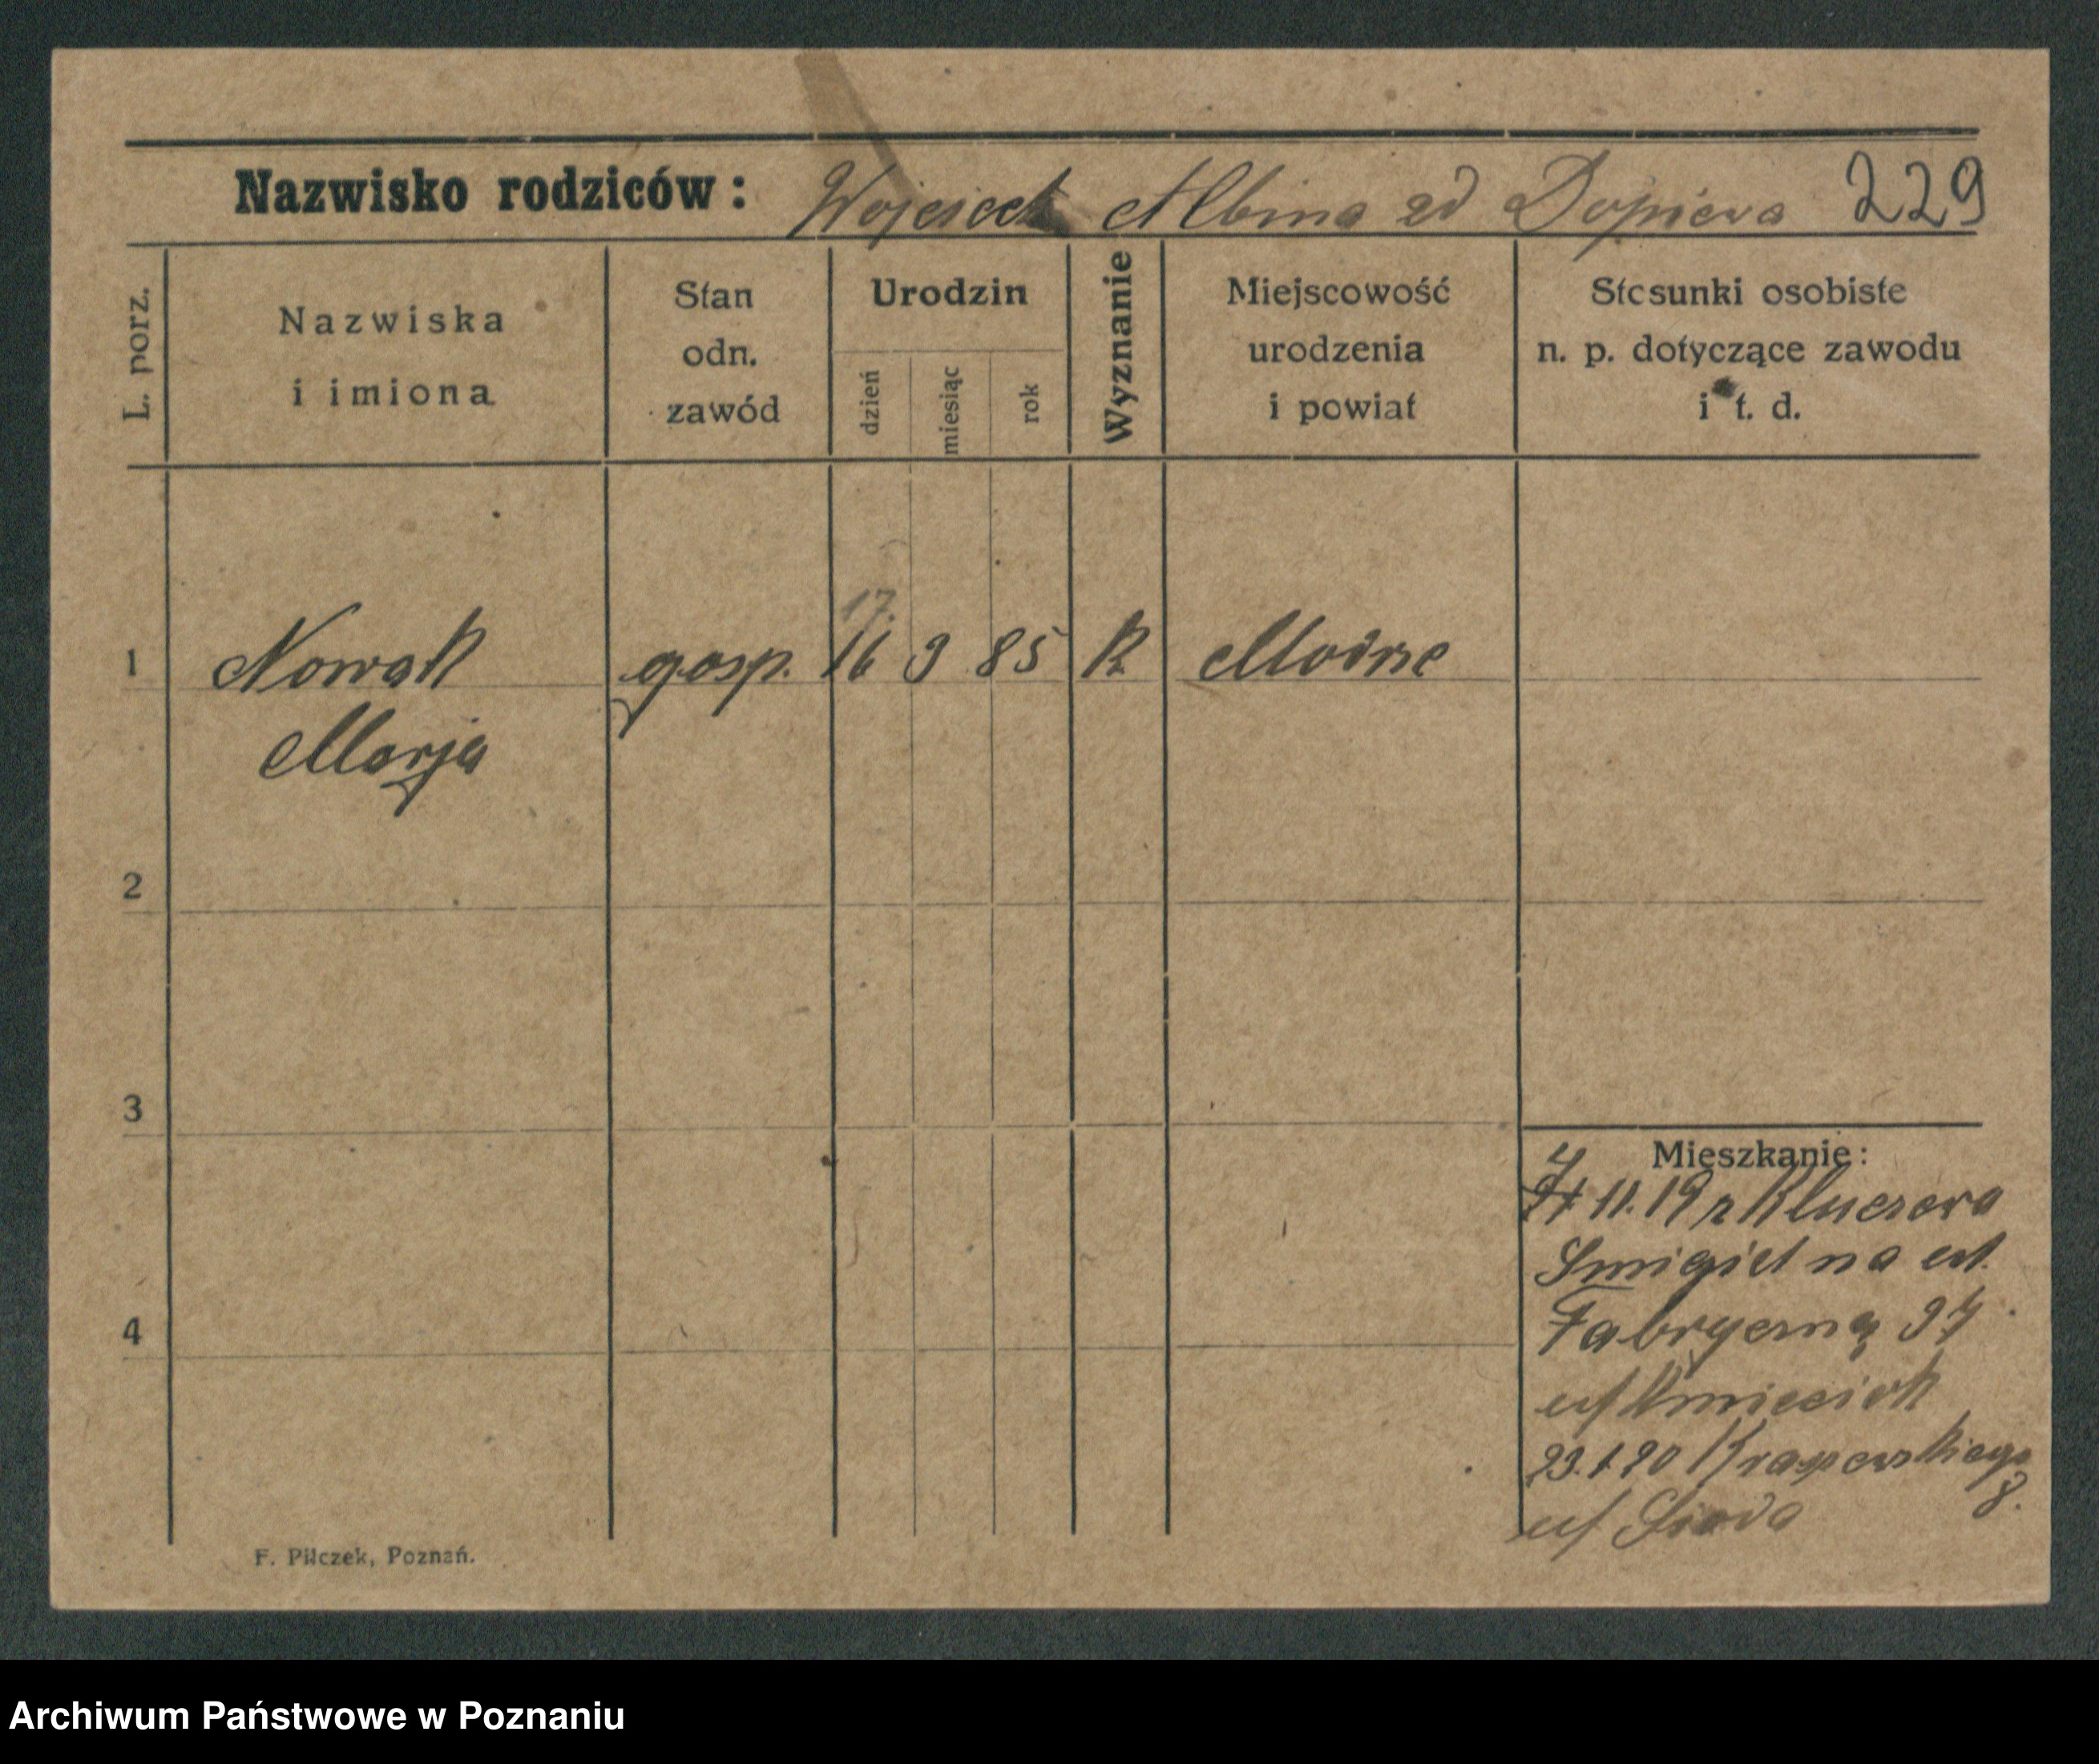 Nazwisko rodziców: Wojciech Albina zd Dopiera 229
L. porz.
Nazwiska i imiona
Stan odn. zawód
Urodzin
dzień miesiąc rok
Wyznanie
Miejscowość urodzenia i powiat
Stosunki osobiste n. p. dotyczące zawodu i t. d.
17.
1 Nowak gosp. 16 3 85 K
Marja
2
3
4
Mieszkanie:
11.19 z Kluczewa
Smigiel na ul.
Fabryczną 37
u/ Kmieciak
23.1.20 Kraszewskiego
8.
u/
F. Pilczek, Poznań.
Archiwum Państwowe w Poznaniu